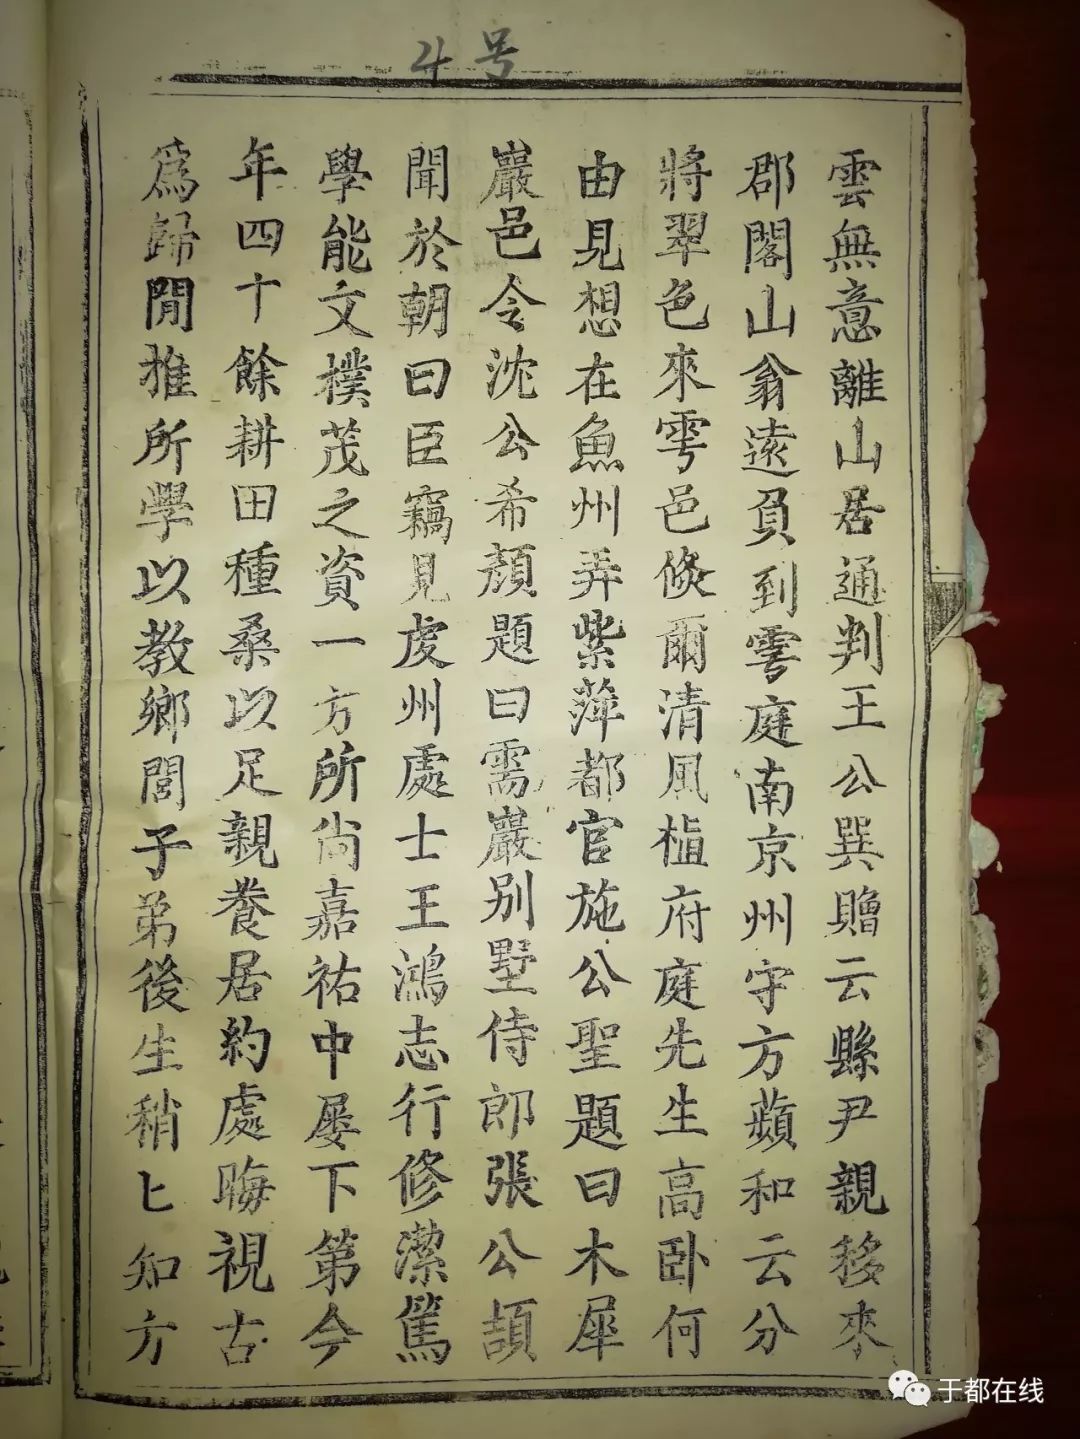 4号
雲無意離山居通判王公巽贈云縣尹親移來
郡閣山翁遠負到雩庭南京州守方蘋和云分
將翠色來雩邑倐爾清風植府庭先生高卧何
由見想在魚州弄紫萍都官施公聖題曰木犀
巖邑令沈公希顏題曰需巖别墅侍郎張公頡
聞於朝曰臣竊見虔州處士王鴻志行修潔篤
學能文樸茂之資一方所尚嘉祐中屡下第今
年四十餘耕田種桑以足親養居約處晦視古
爲歸閒推所學以教鄉閭子弟後生稍匕知方
于都在线